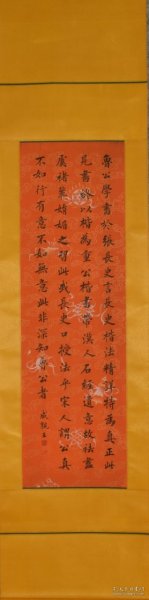 魯公學書於張長史言長史楷法精詳特為真正此
尾書後以楷為重公楷書帶漢人石經遺意故祛盡
虞褚葉娟媚之習此或長史口授法乎宋人謂公真
不如行有意不如無意此非深知魯公者 成親王